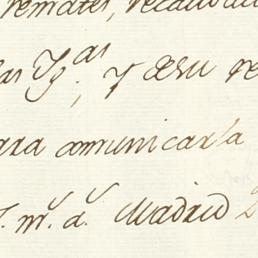 remates, recauda
las Yg.as, y de su re
ara comunicarla
m.s a.s Madrid 2